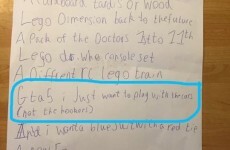 Cardboard tardis or wood
Lego Dimension back to the future
A Pack of the Doctors 1 to 11th
Lego dr who console set
A Different rc lego train
Gta5 i Just want to play with the cars
(not the hookers)
And i want a blue suit with a red tie